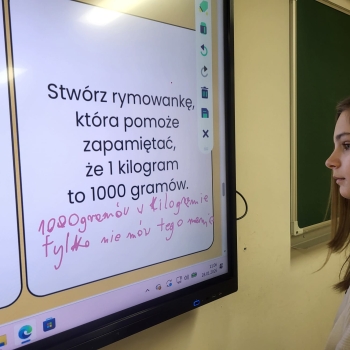 Stwórz rymowankę,
która pomoże
zapamiętać,
że 1 kilogram
to 1000 gramów.
1000 gramów w kilogramie
tylko nie mów tego mamie